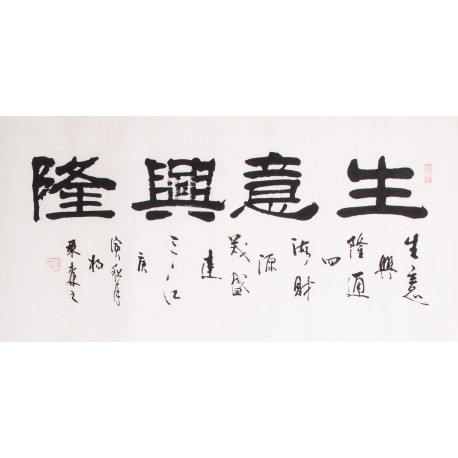 生意興隆
生意
興
隆通
四
海財
源
茂盛
達
三江
庚
寅秋月